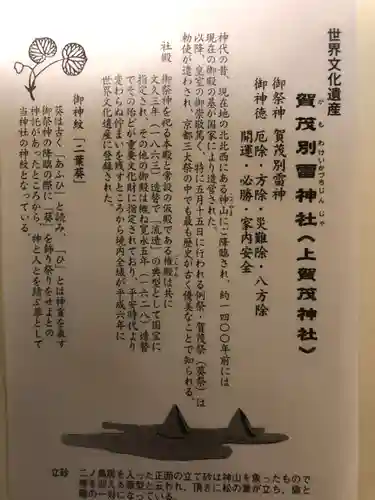 世界文化遺産
賀茂別雷神社〈上賀茂神社〉
かもわけいかづちじんじゃ
御祭神 賀茂別雷神
御神徳 厄除・方除・災難除・八方除
開運・必勝・家内安全
神代の昔、現在地の北北西にある神山にご降臨され、約一四〇〇年前には
現在の御殿の基が国家により造営された。
以降、皇室の御崇敬篤く、特に五月十五日に行われる例祭・賀茂祭（葵祭）は
勅使が遣わされ、京都三大祭の中でも最も歴史が古く優美なことで知られる。
社殿
御祭神を祀る本殿と常設の仮殿である権殿は共に
文久三年（一八六三）造替で「流造」の典型として国宝に
指定され、その他の御殿は概ね寛永五年（一六二八）造替
でその殆どが重要文化財に指定されており、平安時代より
変わらぬ佇まいを残すところから境内全域が平成六年に
世界文化遺産に登録された。
御神紋「二葉葵」
葵は古く「あふひ」と読み、「ひ」とは神霊を表す
御祭神の降臨の際に「葵」を飾り祭りをせよとの
神託があったところから、神と人とを結ぶ草として
当神社の神紋となっている。
立砂